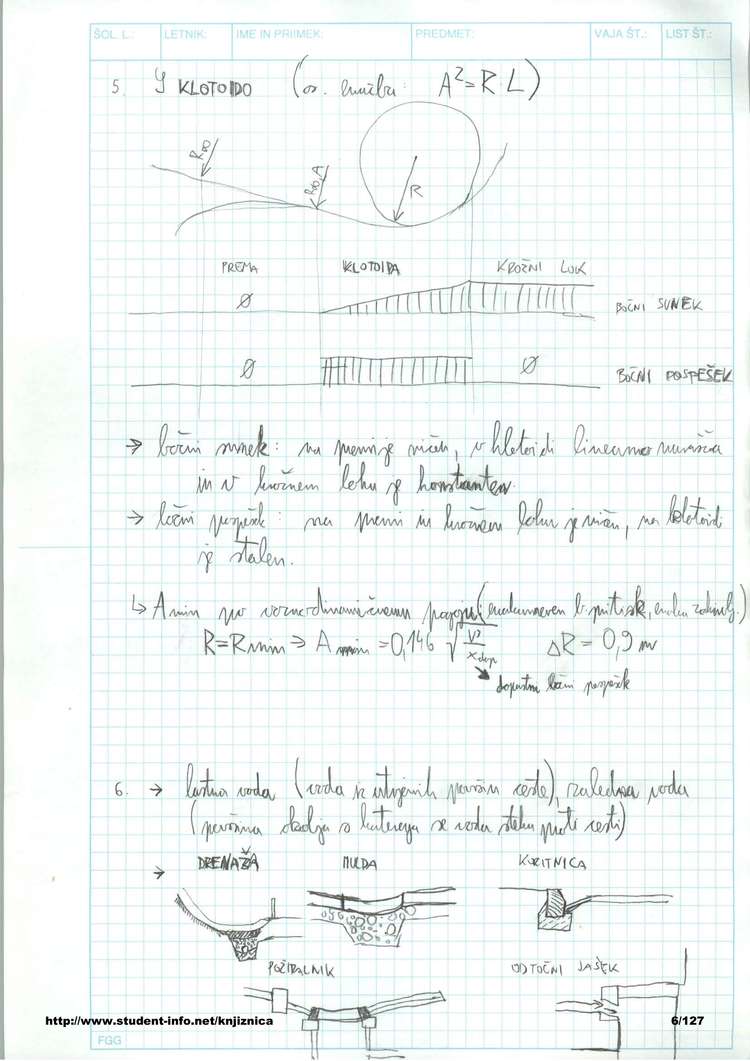 ŠOL. L.: LETNIK: IME IN PRIIMEK: PREDMET: VAJA ŠT.: LIST ŠT.:
5. S KLOTOIDO (os. enačba: A²=R·L)
R∞ R∞,A R
PREMA KLOTOIDA KROŽNI LOK
Ø BOČNI SUNEK
Ø Ø BOČNI POSPEŠEK
→ bočni sunek: na premi je ničen, v klotoidi linearno narašča
in v krožnem loku je konstanten.
→ bočni pospešek: na premi in krožnem loku je ničen, na klotoidi
je stalen.
↳ Amin po voznodinamičnem pogoju (enakomeren b. pritisk,
R=Rmin ⇒ Amin = 0,146 √(V³/xdop) ΔR = 0,9 m
dopustni bočni pospešek
6. → lastna voda (voda iz utrjenih površin ceste), zaledna voda
(površina okolja s katerega se voda steka proti cesti)
→ DRENAŽA MULDA KORITNICA
POŽIRALNIK ODTOČNI JAŠEK
http://www.student-info.net/knjiznica 6/127
FGG